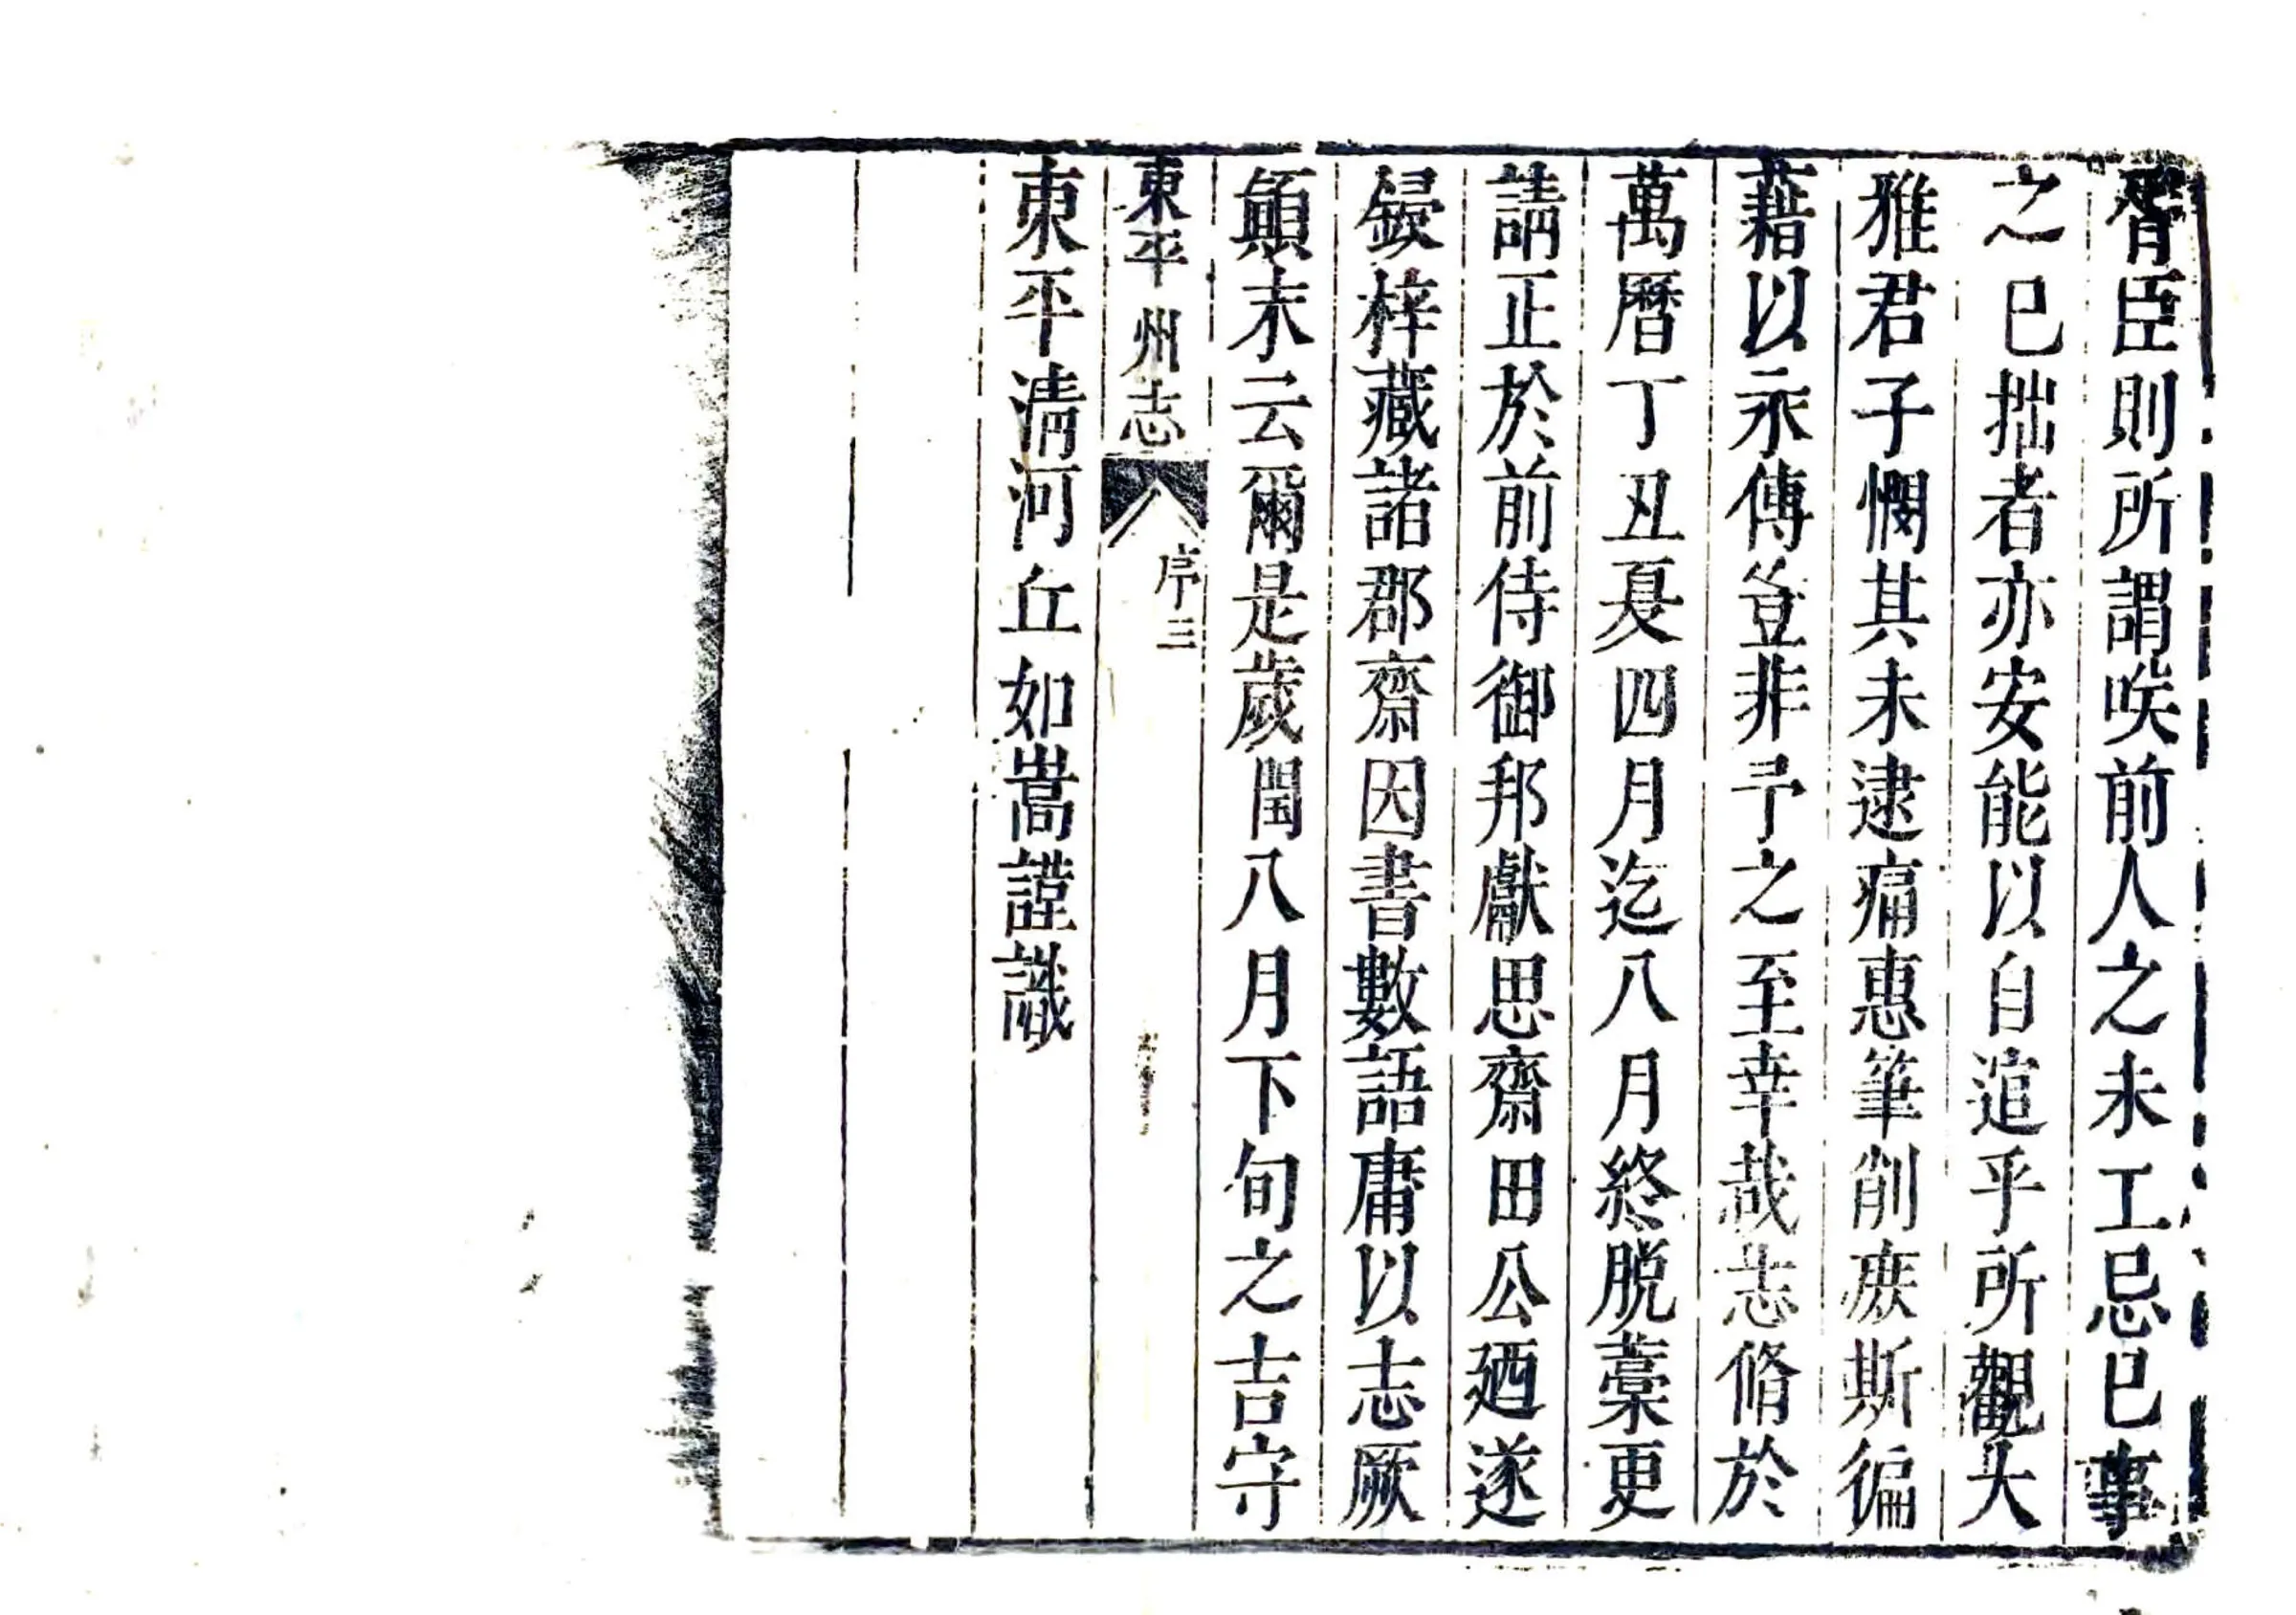 胥臣則所謂咲前人之未工忌巳事
之巳拙者亦安能以自逭乎所觀大
雅君子憫其未逮痛惠筆削庻斯徧
藉以永傳豈非予之至幸哉志脩於
萬曆丁丑夏四月迄八月終脱藁更
請正於前侍御邦獻思齋田公廼遂
鋟梓藏諸郡齋因書數語庸以志厥
顛末云爾是歲閏八月下旬之吉守
東平州志 序 三
東平清河丘如嵩謹識